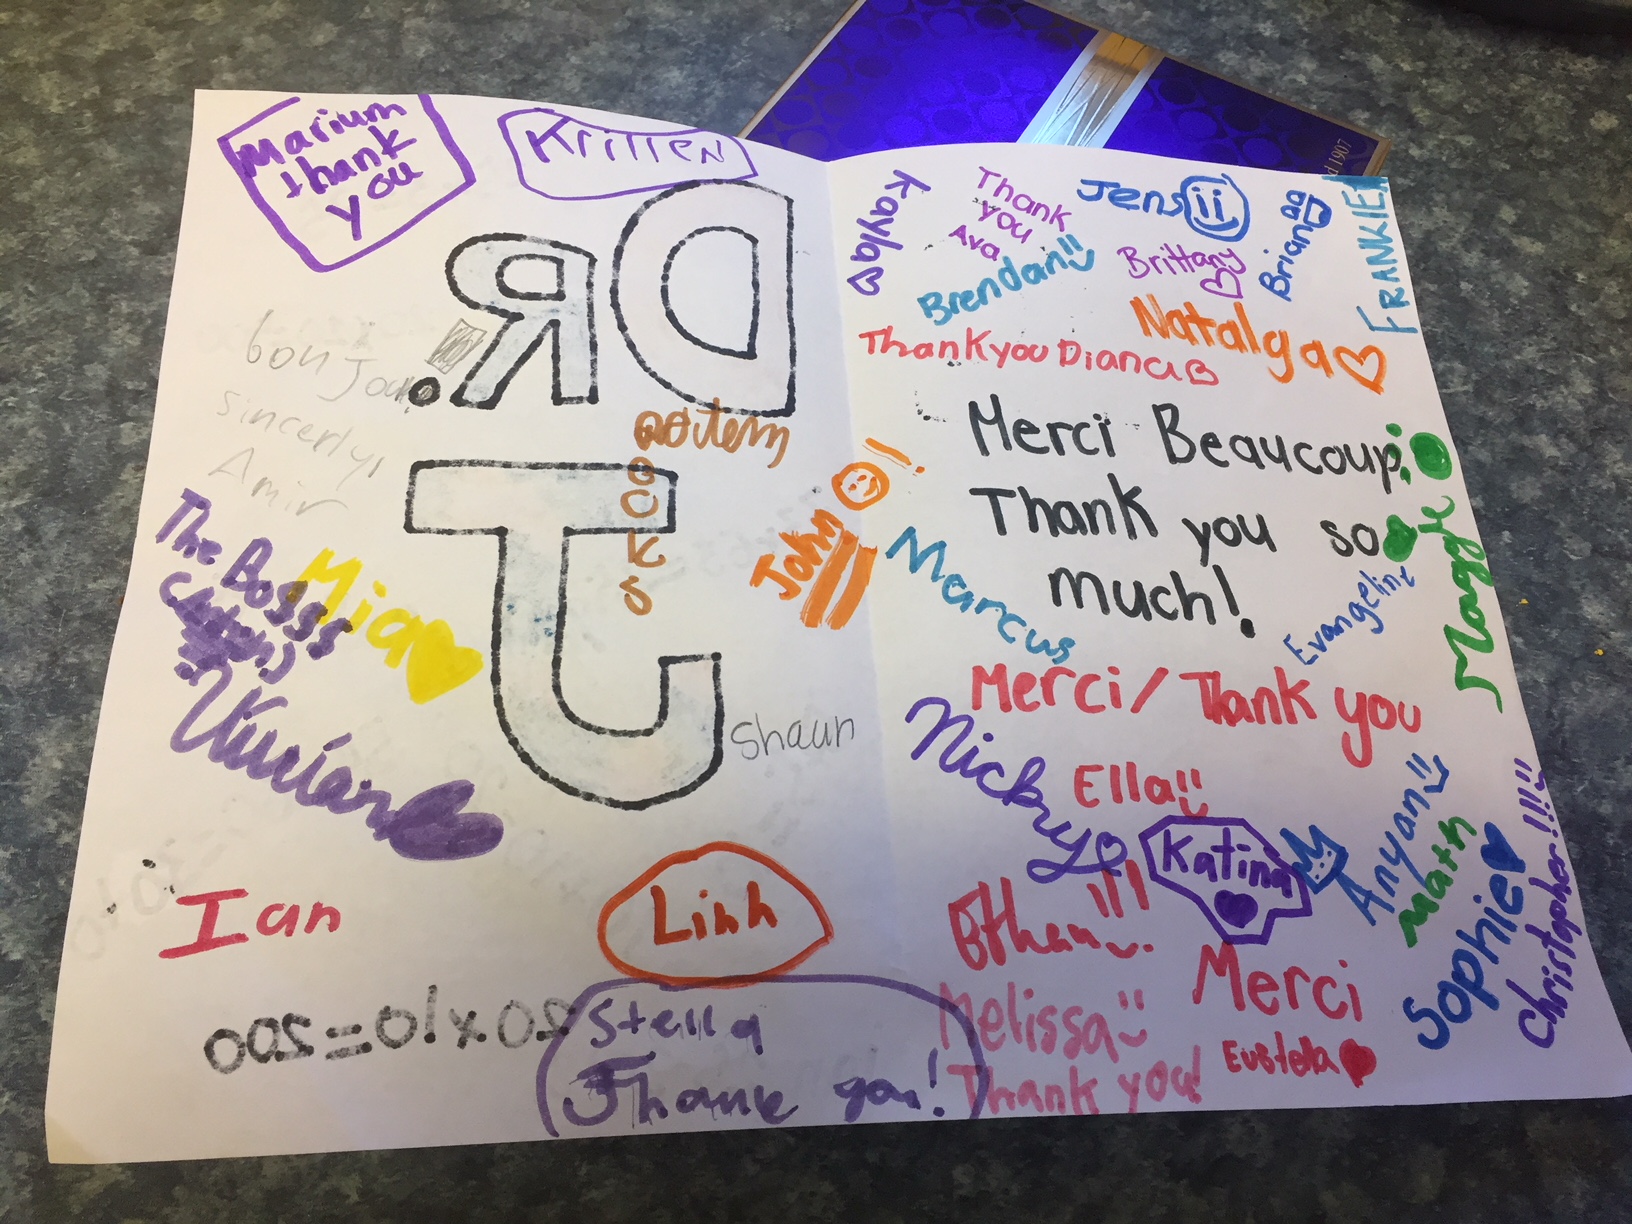 Marium
thank
you
Kritten
DR.
J
bonjour
sincerly,
Amir
ROCKS
The Bosss
Mia
Vivian
shaun
Ian
Linh
20x10=200
Stella
Thank you!
John !
Kayla
Thank
you
Ava
Jens
Brendan
Brittany
Brian
FRANKIE
Natalya
Thank you Diana B
Merci Beaucoup!
Thank you so
much!
Marcus
Evangeline
Maggie
Merci/Thank you
Nicky
Ella
Katina
Anyan
Math
Sophie
Christopher!!!
Ethan!!!
Melissa
Thank you!
Merci
Eustella
d 1907